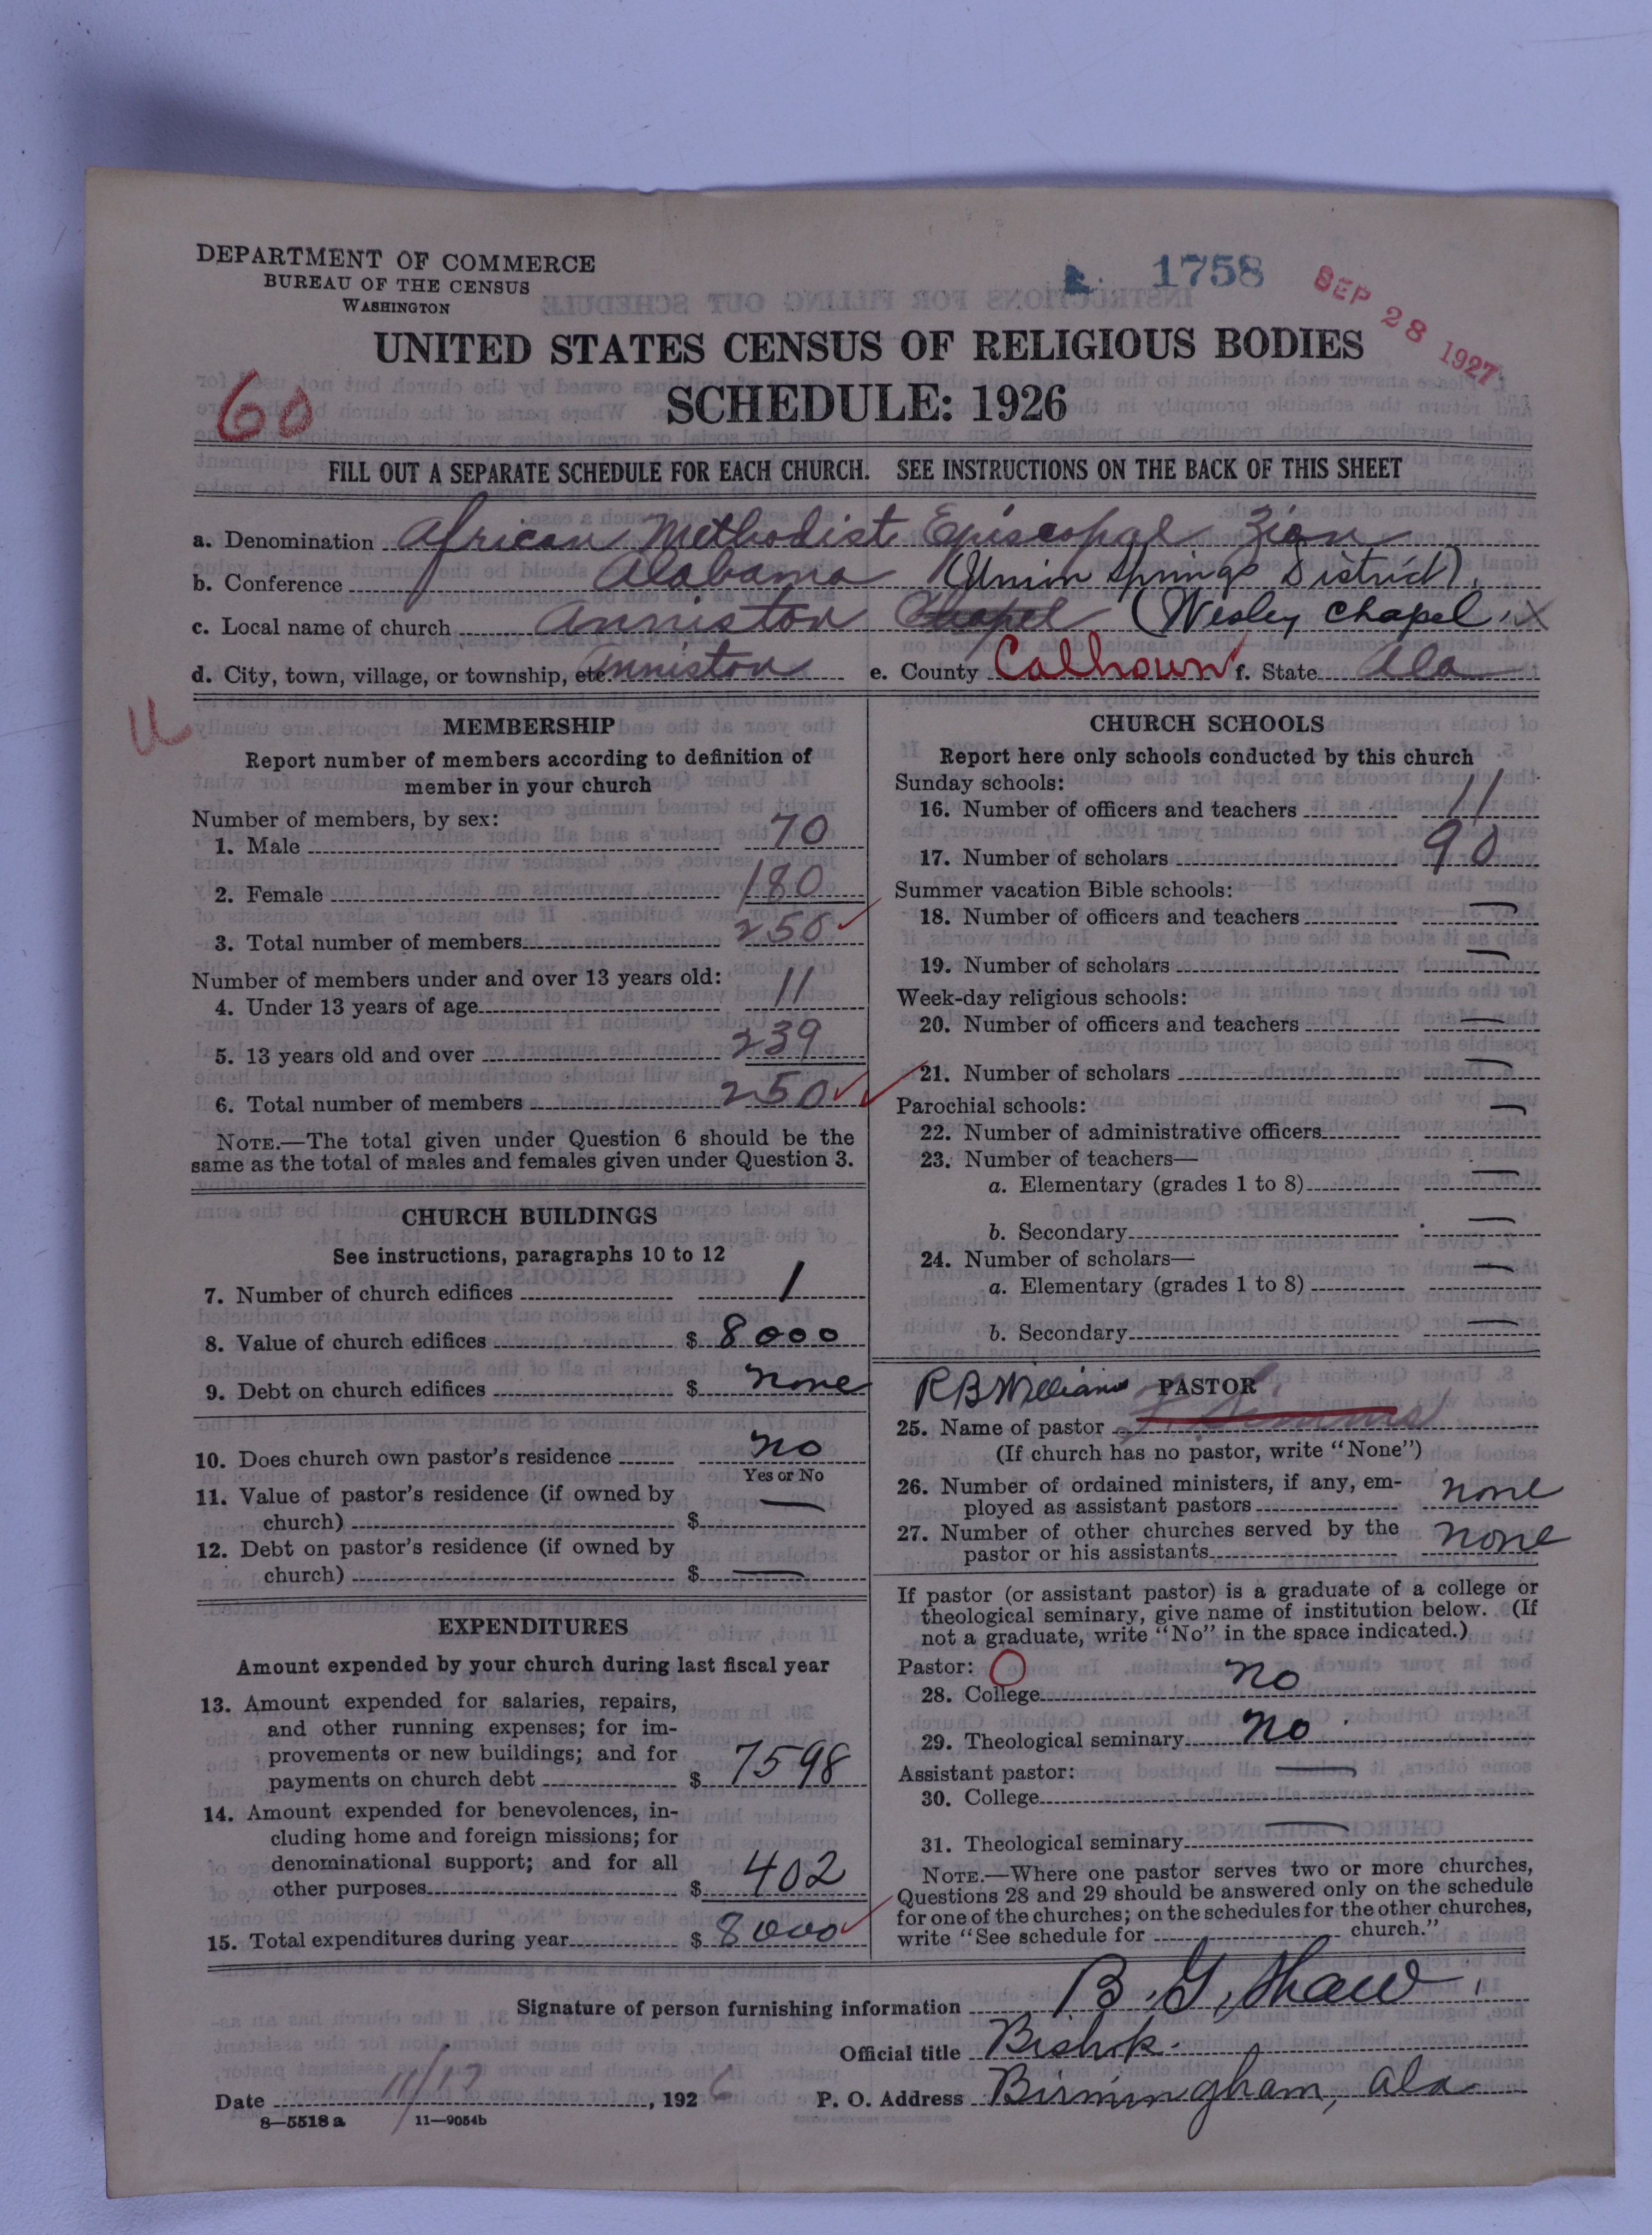 DEPARTMENT OF COMMERCE
BUREAU OF THE CENSUS
WASHINGTON
1758
SEP 28 1927
UNITED STATES CENSUS OF RELIGIOUS BODIES
SCHEDULE: 1926
60
FILL OUT A SEPARATE SCHEDULE FOR EACH CHURCH. SEE INSTRUCTIONS ON THE BACK OF THIS SHEET
a. Denomination African Methodist Episcopal Zion
b. Conference Alabama (Union Springs District).
c. Local name of church Anniston Chapel (Wesley Chapel.
d. City, town, village, or township, etc. Anniston e. County Calhoun f. State Ala
U
MEMBERSHIP
Report number of members according to definition of
member in your church
Number of members, by sex:
1. Male 70
2. Female 180
3. Total number of members 250
Number of members under and over 13 years old:
4. Under 13 years of age 11
5. 13 years old and over 239
6. Total number of members 250
NOTE.—The total given under Question 6 should be the
same as the total of males and females given under Question 3.
CHURCH BUILDINGS
See instructions, paragraphs 10 to 12
7. Number of church edifices 1
8. Value of church edifices $ 8000
9. Debt on church edifices $ none
10. Does church own pastor's residence no
Yes or No
11. Value of pastor's residence (if owned by
church) $ —
12. Debt on pastor's residence (if owned by
church) $ —
EXPENDITURES
Amount expended by your church during last fiscal year
13. Amount expended for salaries, repairs,
and other running expenses; for im-
provements or new buildings; and for
payments on church debt $ 7598
14. Amount expended for benevolences, in-
cluding home and foreign missions; for
denominational support; and for all
other purposes $ 402
15. Total expenditures during year $ 8000
CHURCH SCHOOLS
Report here only schools conducted by this church
Sunday schools:
16. Number of officers and teachers 11
17. Number of scholars 90
Summer vacation Bible schools:
18. Number of officers and teachers —
19. Number of scholars —
Week-day religious schools:
20. Number of officers and teachers —
21. Number of scholars —
Parochial schools:
22. Number of administrative officers —
23. Number of teachers—
a. Elementary (grades 1 to 8) —
b. Secondary —
24. Number of scholars—
a. Elementary (grades 1 to 8) —
b. Secondary —
R B Williams PASTOR
25. Name of pastor
(If church has no pastor, write "None")
26. Number of ordained ministers, if any, em-
ployed as assistant pastors none
27. Number of other churches served by the
pastor or his assistants none
If pastor (or assistant pastor) is a graduate of a college or
theological seminary, give name of institution below. (If
not a graduate, write "No" in the space indicated.)
Pastor: O
28. College no
29. Theological seminary no
Assistant pastor:
30. College —
31. Theological seminary —
NOTE.—Where one pastor serves two or more churches,
Questions 28 and 29 should be answered only on the schedule
for one of the churches; on the schedules for the other churches,
write "See schedule for church."
Signature of person furnishing information B. G. Shaw
Official title Bishop.
Date 11/17, 1926 P. O. Address Birmingham, Ala
8—5518 a 11—9054b